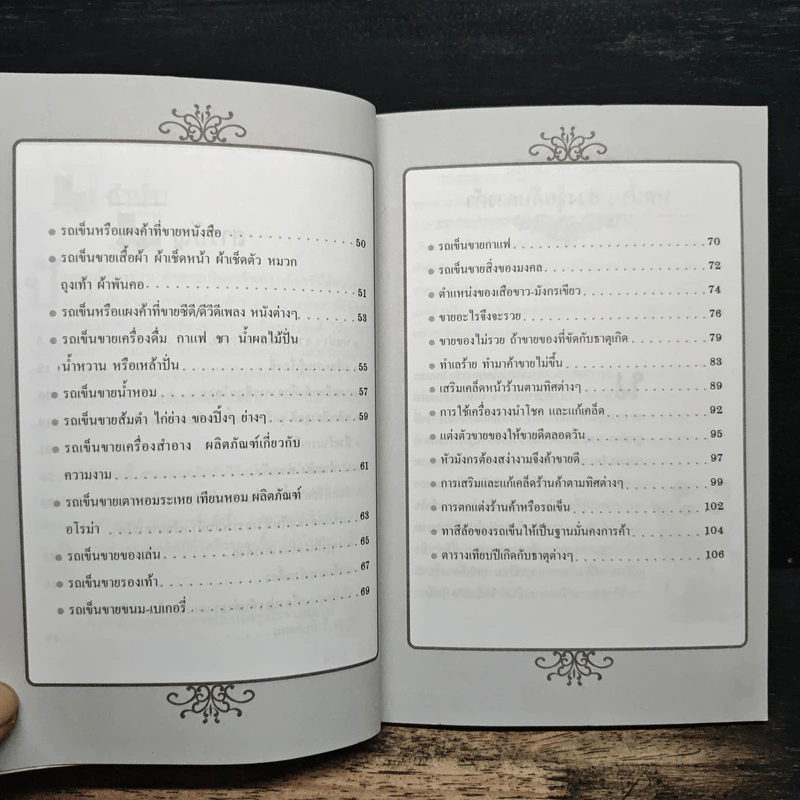 รถเข็นหรือแผงค้าที่ขายหนังสือ . . . . . . . . . . . . . 50
รถเข็นขายเสื้อผ้า ผ้าเช็ดหน้า ผ้าเช็ดตัว หมวก
ถุงเท้า ผ้าพันคอ . . . . . . . . . . . . . . . . . . . . 51
รถเข็นหรือแผงค้าที่ขายซีดี/ดีวีดีเพลง หนังต่างๆ . . . . . 53
รถเข็นขายเครื่องดื่ม กาแฟ ชา น้ำผลไม้ปั่น
น้ำหวาน หรือเหล้าปั่น . . . . . . . . . . . . . . . . . 55
รถเข็นขายน้ำหอม . . . . . . . . . . . . . . . . . . . 57
รถเข็นขายส้มตำ ไก่ย่าง ของปิ้งๆ ย่างๆ . . . . . . . . . 59
รถเข็นขายเครื่องสำอาง ผลิตภัณฑ์เกี่ยวกับ
ความงาม . . . . . . . . . . . . . . . . . . . . . . . 61
รถเข็นขายเตาหอมระเหย เทียนหอม ผลิตภัณฑ์
อโรม่า . . . . . . . . . . . . . . . . . . . . . . . . 63
รถเข็นขายของเล่น . . . . . . . . . . . . . . . . . . . 65
รถเข็นขายรองเท้า . . . . . . . . . . . . . . . . . . . 67
รถเข็นขายขนม-เบเกอรี่ . . . . . . . . . . . . . . . . . 69
รถเข็นขายกาแฟ . . . . . . . . . . . . . . . . . . . . 70
รถเข็นขายสิ่งของมงคล . . . . . . . . . . . . . . . . . 72
ตำแหน่งของเสือขาว-มังกรเขียว . . . . . . . . . . . . . 74
ขายอะไรจึงจะรวย . . . . . . . . . . . . . . . . . . . 76
ขายของไม่รวย ถ้าขายของที่ขัดกับธาตุเกิด . . . . . . . . 79
ทำเลร้าย ทำมาค้าขายไม่ขึ้น . . . . . . . . . . . . . . 83
เสริมเคล็ดหน้าร้านตามทิศต่างๆ . . . . . . . . . . . . . 89
การใช้เครื่องรางนำโชค และแก้เคล็ด . . . . . . . . . . 92
แต่งตัวขายของให้ขายดีตลอดวัน . . . . . . . . . . . . . 95
หัวมังกรต้องสง่างามจึงค้าขายดี . . . . . . . . . . . . . 97
การเสริมและแก้เคล็ดร้านค้าตามทิศต่างๆ . . . . . . . . . 99
การตกแต่งร้านค้าหรือรถเข็น . . . . . . . . . . . . . . 102
ทาสีล้อของรถเข็นให้เป็นฐานมั่นคงการค้า . . . . . . . . . 104
ตารางเทียบปีเกิดกับธาตุต่างๆ . . . . . . . . . . . . . . 106